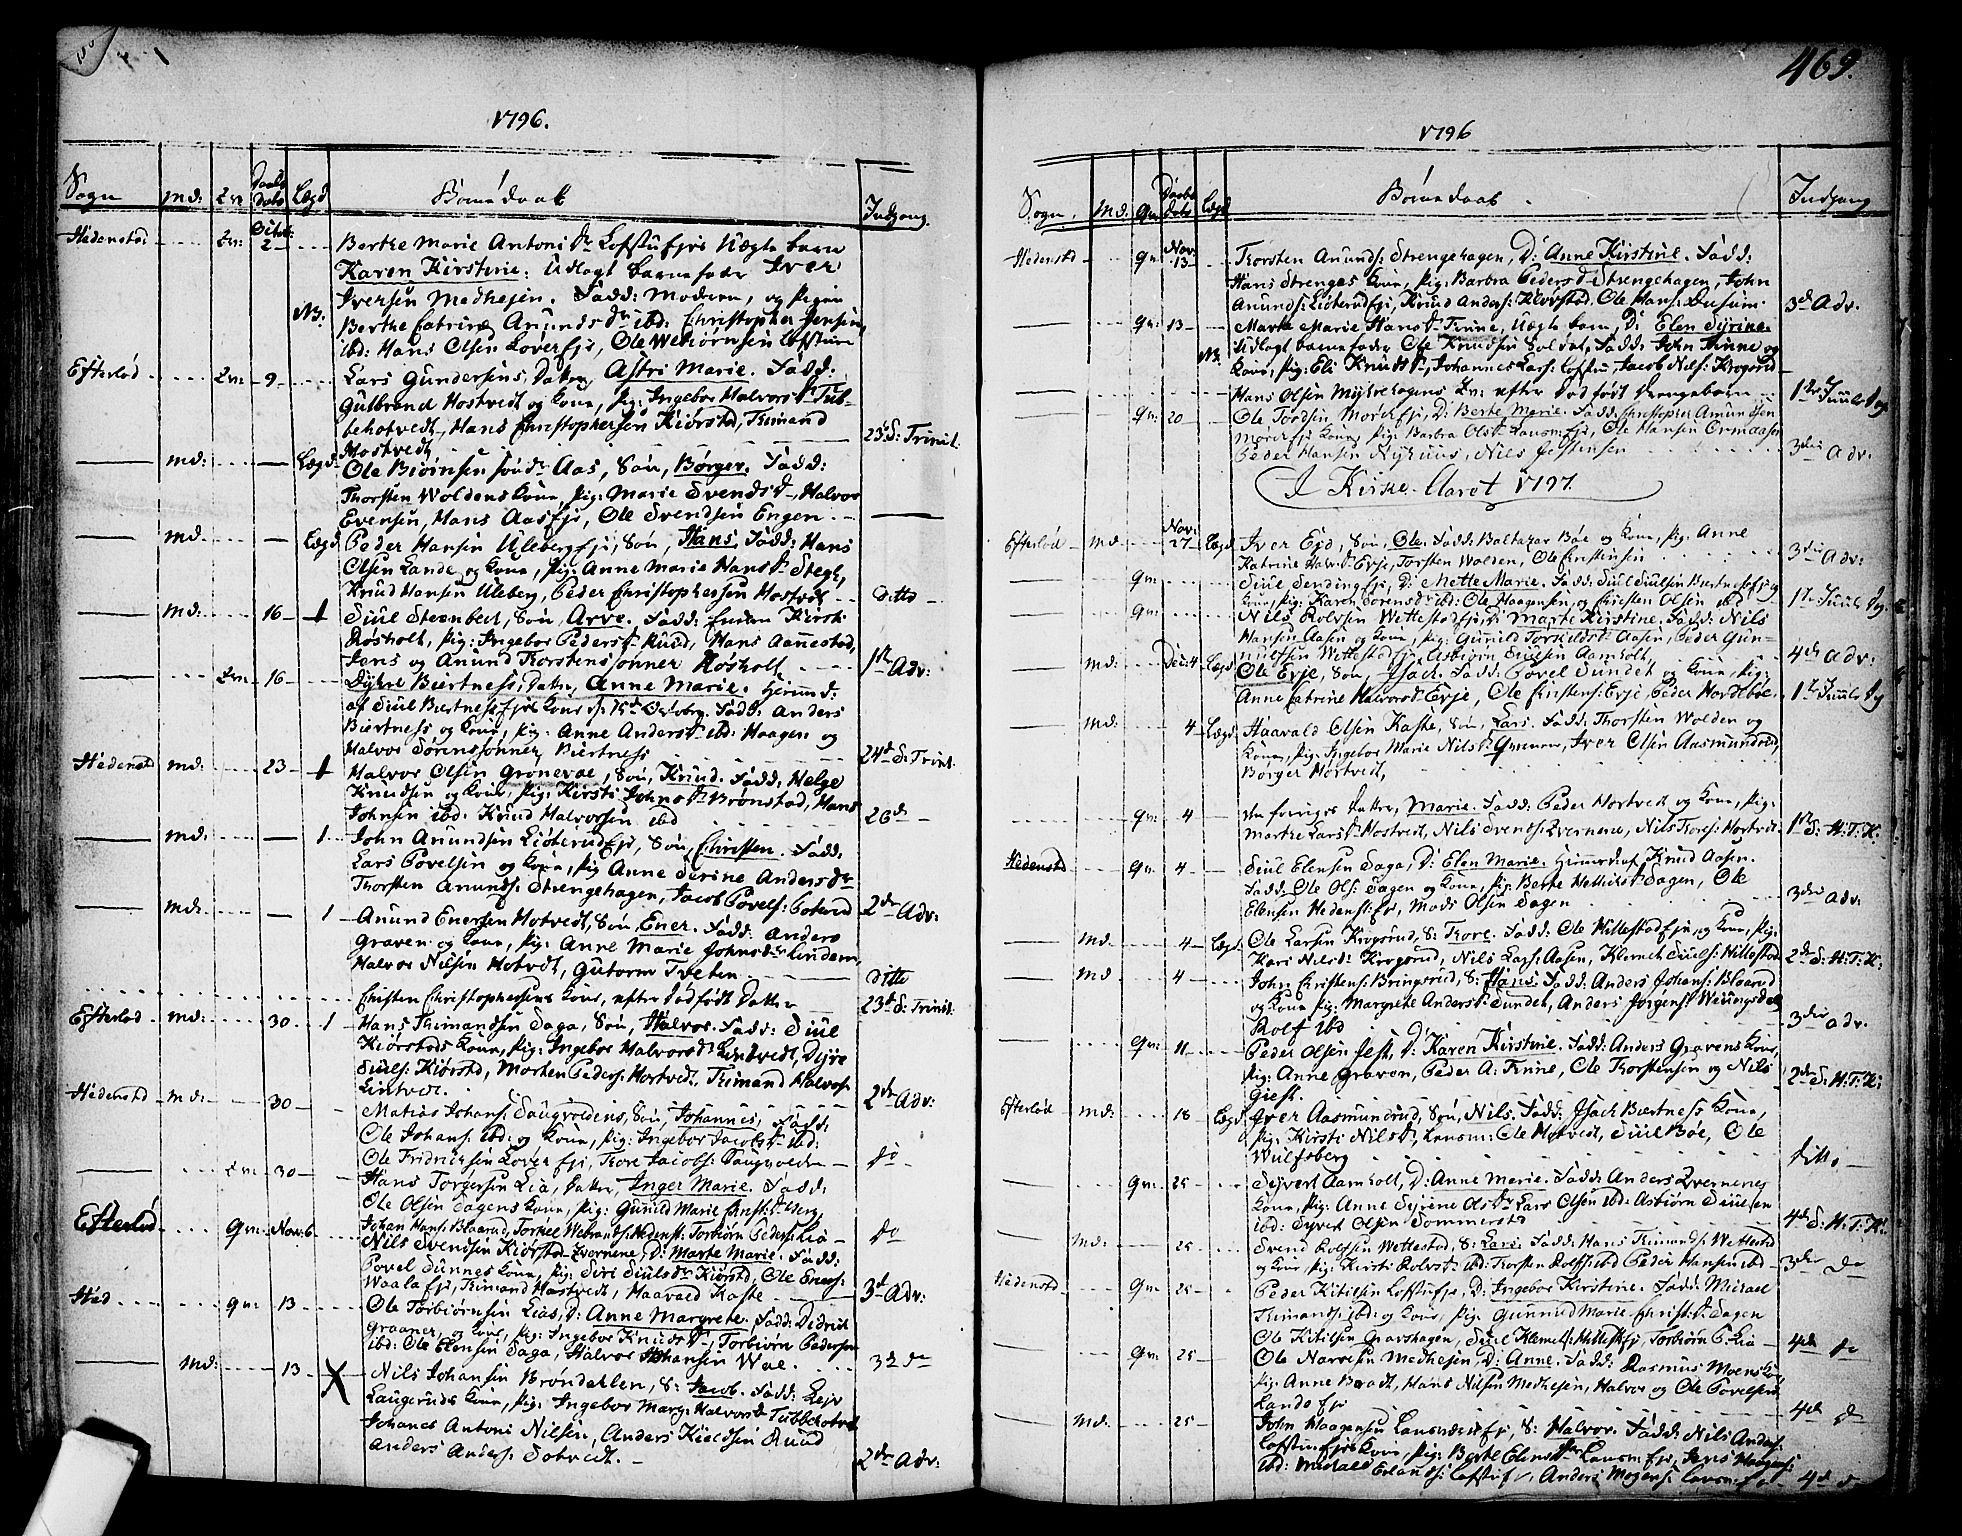 1796.
Sogn Md: Qvi Daabs Dato Lægd Børnedaab Indgang.
Hedenstad Qvi: Octobr: 2 Berthe Marie Antoni Dr Lofstu Ejes Uægte barn
Karen Kirstine: Udlagt barnefader Iver
Iversen Medhejen. Fadd: Moderen, og pigen
NB. Berthe Catrine Anunds Dr ibd: Christopher Jensen
ibd: Hans Olsen Lover Eje, Ole Webiørnsen Lofstuen
Efterlød Qvi: 9 Lars Gundersens, Datter, Astri Marie. Fadd:
Gulbrand Hostvedt og Kone, pig: Ingebor Halvors Dr Tub-
behotvedt, Hans Christophersen Kiørstad, Trimand
Hostvedt 23de S: Trinit.
Md: Lægd Ole Biørnsen søndr Aas, Søn, Børger. Fadd:
Thorsten Woldens Kone, pig: Marie Svends Dr, Halvor
Evensen, Hans Aas Eje, Ole Svendsen Engen
Md: Lægd Peder Hansen Uleberg Eje, Søn, Hans. Fadd: Hans
Olsen Lande og Kone, pig: Anne Marie Hans Dr Stegle,
Knud Hansen Uleberg, Peder Christophersen Hostvedt ditto
Md: 16 1 Siul Steenbek, Søn, Arve. Fadd:
Røsholt, pig: Ingebor Peders Dr Ruud, Hans Aannestad,
Jens og Anund Thorstensønner Røsholt 1ste Adv:
Qvi 16 Datter, Anne Marie. Hiemmed:
af Siul Biertness Ejes Kone. Fadd: Anders
Biertness og Kone, pig: Anne Anders Dr ibd: Haagen og
Halvor Sørensønner Biertness 24de S: Trinit.
Hedenstad Md: 23 1 Halvor Olsen Gronevae, Søn, Knud. Fadd: Helge
Knudsen og Kone, pig: Kirsti Johns Dr Brønstad, Hans
Johnsen ibd: Knud Halvorsen ibd 26de
Md: 1 John Anundsen Lioterud Eje, Søn, Christen. Fadd:
Lars Povelsen og Kone, pig Anne Serine Anders Dr
Thorsten Anunds: Strengehagen, Jacob Povels: 2den Adv:
Md: 1 Anund Enersen Hotvedt, Søn, Ener. Fadd: Anders
Graven og Kone, pig: Anne Marie Johns Dr Lindem,
Halvor Nilsen Hotvedt, Gutorm Tveten ditto
Christen Christophersens Kone, efter Dødfødt Datter 23de S: Trinit.
Efterlød Md: 30 1 Hans Trimandsen Saga, Søn, Halvor. Fadd: Siul
Kiørstads Kone, pig: Ingebor Halvors Dr Lintvedt,
Siuls: Kiørstad, Morten Peders: Hostvedt, Trimand Halvors:
Lintvedt. 2den Adv:
Hedenstad Md: 30 Matias Johans: Saugvoldens, Søn, Johannes, Fadd:
Ole Johans: ibd: og Kone, pig: Ingebor Jacobs Dr ibd:
Ole Fridrichsen Lover Eje, Tore Jacobs: Saugvolden do
Qvi: 30 Hans Torgersen Lia, Datter, Inger Marie. Fadd:
Ole Olsen Sagens Kone, pig: Gunild Marie Christ: Dr Berg,
Johan Hans: Blaarud, Torkel Hedenst: Torbiørn Peders: Lia do
Efterlød Qvi: Nov: 6 Nils Svendsen Kiørstad Qvernene, D: Marte Marie. Fadd:
Povel Sunnes Kone, pig: Siri Siuls Dr Kiørstad, Ole Eners:
Waala Eje, Trimand Hostvedt, Haavald Kaske 3de Adv:
Hed Qvi: 13 Ole Torbiørnsen Lias, D: Anne Margrete. Fadd: Didrik
Graaner og Kone, pig: Ingebor Knuds Dr, Torbiørn Pedersen
ibd: Ole Elensen Saga, Halvor Johansen Wae. 3de do
Md: 13 X Nils Johansen Brøndallen, S: Jacob. Fadd: Lejv
Laugeruds Kone, pig: Ingebor Marg: Halvors Dr Tubbehotvedt
Johanes Antoni Nilsen, Anders Kieldsen Ruud
Anders Anders: Sotvedt. 2den Adv:
469.
1796
Sogn. Md. Qvi Daabs Dato Lægd Børnedaab. Indgang
Hedenstad Qvi: Nov: 13 Torsten Anunds: Strengehagen, D: Anne Kirstine. Fadd:
Hans Strenges Kone, pig: Barbra Peders D Strengehagen, John
Anunds: Lioterud Eje, Knud Anders: Kiørstad, Ole Hans: 3de Adv.
Qvi: 13 Marte Marie Hans Dr Trune, Uægte barn, D: Elen Syrine.
NB. Udlagt barnefader Ole Knudsen Soldat, Fadd: John Trune og
Kone, pig: Eli Knuds Dr, Johannes Lars: Lofstu, Jacob Nels: Krogsrud
Hans Olsen Myhrehagens Qvi: efter Dødfødt Drengebarn 1ste Juule Dg
Qvi: 20 Ole Tordsen Morch Eje, D: Berte Marie. Fadd: Christopher Amundsen
Morch Eje Kone, pig: Barbra Ols Dr Lansm Eje, Ole Hansen Ormaasen
Peder Hansen Nyhuus, Nils Jostensen 3die Adv.
I Kirke-Aaret 1797.
Efterlød Md Nov: 27 Lægd Iver Ejd, Søn, Ole. Fadd: Baltazar Bøe og Kone, pig: Anne
Katrine Halv: Dr Evje, Torsten Wolden, Ole Cristensen 3die Adv:
Qvi Siul Sending Eje, D: Mette Marie. Fadd: Siul Siulsen Biertnes Eje og
Kone, pig: Karen Sørens Dr ibd: Ole Haagensen, og Christen Olsen ibd 1ste Juule Dg.
Qvi: Nils Rolvsen Wettestad Eje, D: Marte Kirstine. Fadd: Nils
Hansen Aasen og Kone, pig: Gunild Torkilds Dr Aasen, Peder Gun-
nulfsen Wettestad Eje, Asbiørn Siulsen Aamholt, 4de Adv:
Md: Dec: 4 Lægd Ole Evje, Søn, Isach. Fadd: Povel Sundet og Kone, pig:
Anne Catrine Halvors D Evje, Ole Cristens: Evje, Peder Hordeboe 1ste Juule Dg
Md: 4 Lægd Haavald Olsen Kaske, Søn, Lars. Fadd: Thorsten Wolden og
Kone, pig: Ingebor Marie Nils Dr, Iver Olsen Aasmundrud,
Børger Hostvedt,
Qvi: 4 En foriges Datter, Marie. Fadd: Peder Hostvedt og Kone, pig:
Marte Lars Dr Hostvedt, Nils Svends: Qvernene, Nils Tores: Hostvedt 1ste S: H: T: K:
Hedenstd Qvi: 4 Siul Elensen Saga, D: Elen Marie. Hiemmed: af Knud Aasen.
Fadd: Ole Ols: Sagen og Kone, pig: Berte Sagen, Ole
Elensen Hedenst: Eje, Mads Olsen Sagen 3die Adv:
Md: 4 Lægd: Ole Larsen Krogsrud, S: Tore. Fadd: Ole Hillestad Eje, og Kone, pig:
Kari Nils D: Krogsrud, Nils Lars: Aasen, Klemet Siuls: Hillestad 2den S: H: T: K:
Md 4 John Christens: Bringsrud, S: Hans. Fadd: Anders Johans: Blaarud
og Kone pig: Margrete Anders Dr Sundet, Anders Jørgens: Wiungsdal
Rolf ibd 3die Adv.
Qvi: 11 Peder Olsen Jest, D: Karen Kirstine. Fadd: Anders Gravens Kone,
pig: Anne Graven, Peder A: Trune, Ole Thorstensen og Nils
Giest. 2den S: H: T: K:
Efterlød Md: 18 Lægd. Iver Aasmundrud, Søn, Nils. Fadd: Isach Biertness Kone,
pig: Kirsti Nils Dr, Lansm: Ole Hotvedt, Siul Bøe, Ole
Wulfsberg ditto
Qvi: 25 Syvert Aamholt, D: Anne Marie. Fadd: Anders Qvernenes
Kone, pig: Anne Syrene Ols Dr Lars Olsen ibd: Asbiørn Siulsen
ibd: Syvert Olsen Sommerstad 4de S: H: T: K:
Md: 25 Svend Rolfsen Wettestad, S: Lars. Fadd: Hans Trimands: Wettestad
og Kone, pig: Kirsti Rolvs Dr ibd: Torsten Rolfs: ibd Peder Hansen ibd 3die do
Hedenstd Qvi: 25 Peder Kitilsen Lofstu Eje, D: Ingebor Kirstine. Fadd: Michael
Trimands: ibd: og Kone, pig: Gunnild Marie Christ: Dr Sagen
Ole Kitilsen Gravshagen, Siul Klemets: Hillest Eje, Torbiørn P: Lia 4de do
Qvi: 25 Ole Narvesen Medhejen, D: Anne. Fadd: Rasmus Moens Kone
pig: Anne Bradt, Hans Nilsen Medhejen, Halvor og Ole Povelsen
Lande Eje 4de do
Md: 25 John Haagensen Eje, S: Halvor. Fadd: Nils Anders:
Lofstu Ejes Kone, pig: Berte Elens Dr Lansm Eje, Jens Haagens:
ibd: Michael Erlands: Lofstu E, Anders Mogens: Lansm: Eje 4de d